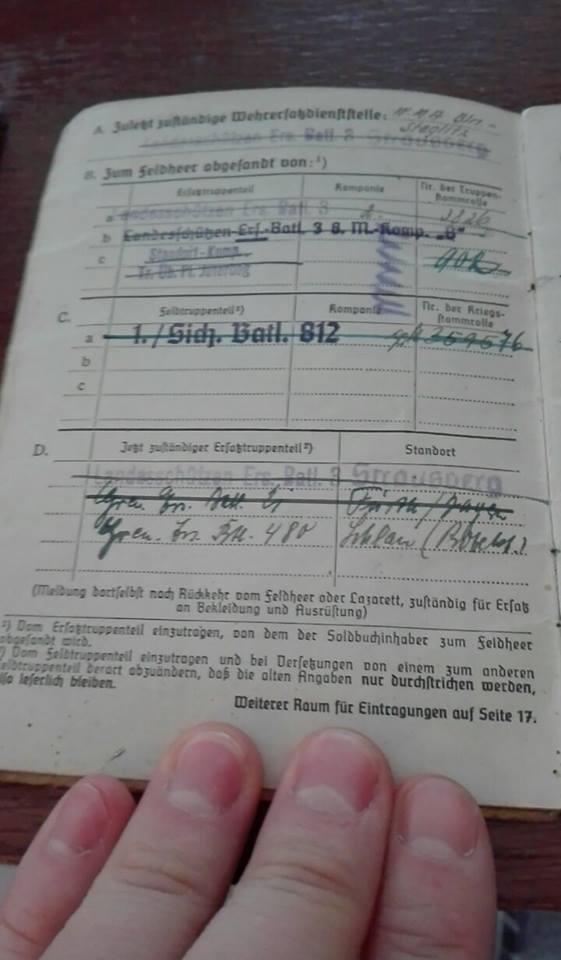 A. Zuletzt zuständige Wehrersatzdienststelle: W.M.A. Bln-
Steglitz
Landesschützen Ers. Batl. 3 Strausberg
B. Zum Feldheer abgesandt von:¹)
Ersatztruppenteil Kompanie Nr. der Truppen-
stammrolle
a Landesschützen Ers. Batl. 3
b Landesschützen-Ers.-Batl. 3 8. M.-Komp. „G“
c Standort-Komp.
Tr. Üb. Pl. Jüterbog
C. Feldtruppenteil²) Kompanie Nr. der Kriegs-
stammrolle
a 1./Sich. Batl. 812
b
c
D. Jetzt zuständiger Ersatztruppenteil²) Standort
Landesschützen Ers. Batl. 3 Strausberg
Gren. Ers. Batl.
Gren. Ers. Btl. 480
(Meldung dortselbst nach Rückkehr vom Feldheer oder Lazarett, zuständig für Ersatz
an Bekleidung und Ausrüstung)
¹) Vom Ersatztruppenteil einzutragen, von dem der Soldbuchinhaber zum Feldheer
abgesandt wird.
²) Vom Feldtruppenteil einzutragen und bei Versetzungen von einem zum anderen
Feldtruppenteil derart abzuändern, daß die alten Angaben nur durchstrichen werden,
also leserlich bleiben.
Weiterer Raum für Eintragungen auf Seite 17.